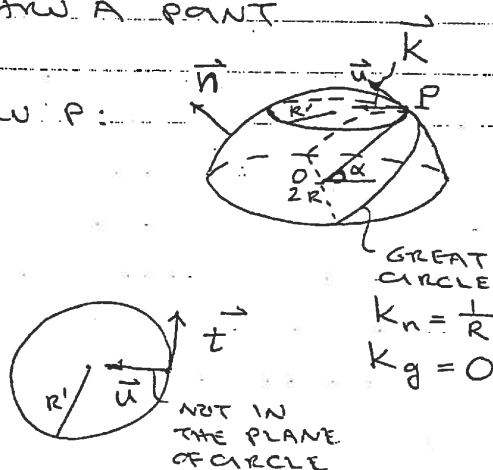 A POINT
k
n
u
P
P:
R'
O
α
2R
GREAT
CIRCLE
kn = 1/R
kg = 0
t
R'
u
NOT IN
THE PLANE
OF CIRCLE